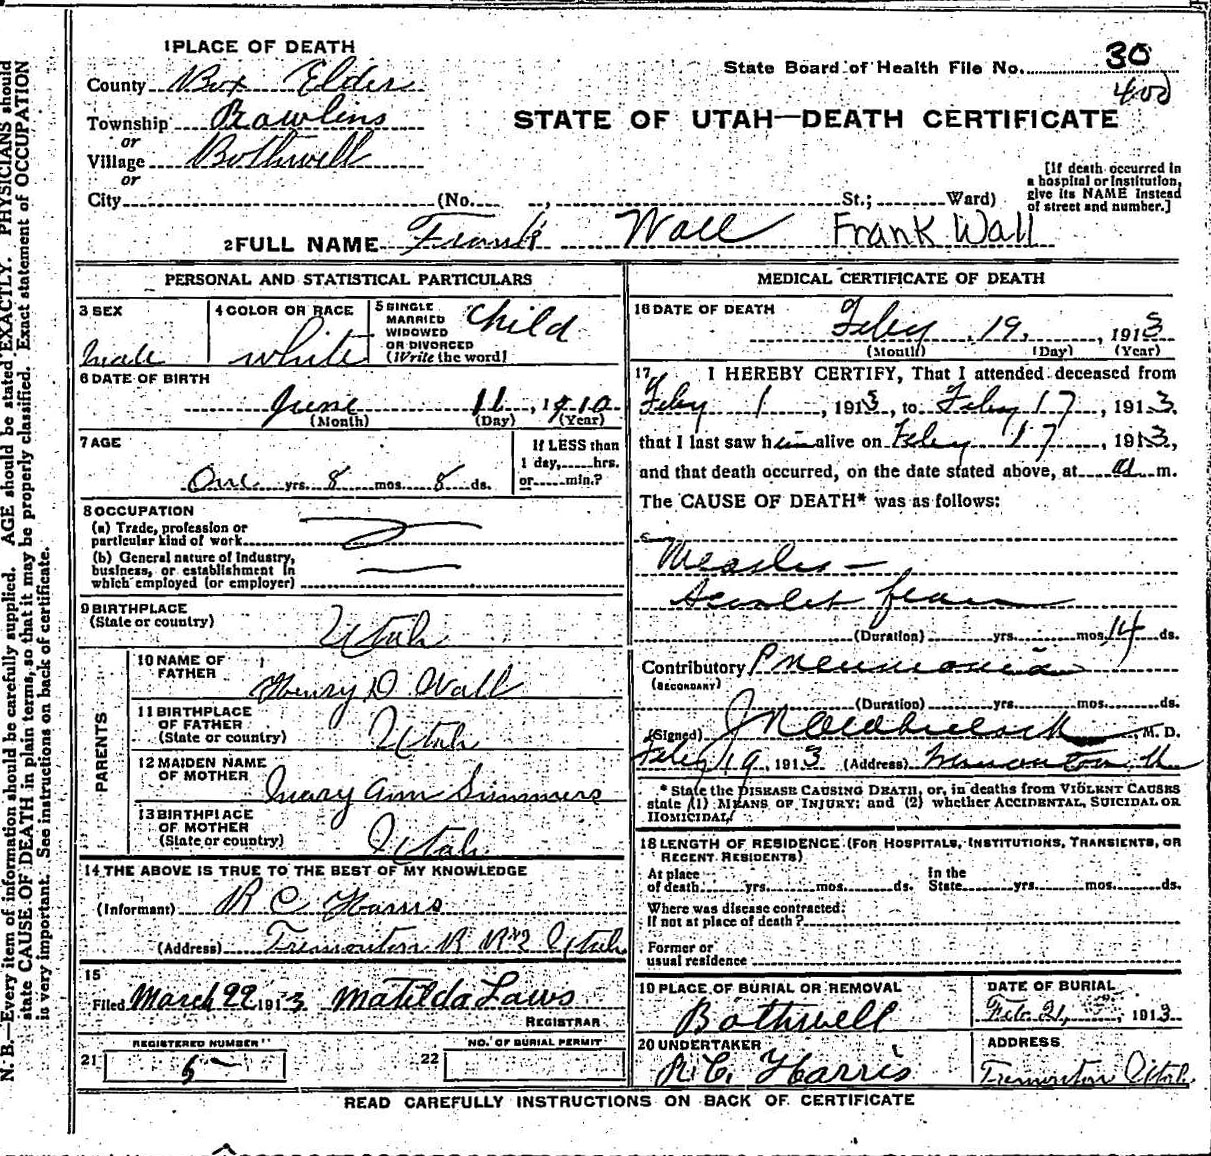 1 PLACE OF DEATH
County Box Elder
Township Rawlins
or
Village Bothwell
or
City (No. , St.; Ward)
State Board of Health File No. 30
400
STATE OF UTAH—DEATH CERTIFICATE
[If death occurred in
a hospital or institution,
give its NAME instead
of street and number.]
2 FULL NAME Frank Wall Frank Wall
PERSONAL AND STATISTICAL PARTICULARS
3 SEX
Male
4 COLOR OR RACE
white
5 SINGLE
MARRIED
WIDOWED
OR DIVORCED
(Write the word)
Child
6 DATE OF BIRTH
June 11, 1910
(Month) (Day) (Year)
7 AGE
One yrs. 8 mos. 8 ds.
If LESS than
1 day, hrs.
or min.?
8 OCCUPATION
(a) Trade, profession or
particular kind of work
(b) General nature of Industry,
business, or establishment in
which employed (or employer)
9 BIRTHPLACE
(State or country)
Utah
PARENTS
10 NAME OF
FATHER
Henry D Wall
11 BIRTHPLACE
OF FATHER
(State or country)
Utah
12 MAIDEN NAME
OF MOTHER
Mary Ann Simmers
13 BIRTHPLACE
OF MOTHER
(State or country)
Utah
14 THE ABOVE IS TRUE TO THE BEST OF MY KNOWLEDGE
(Informant) R C Harris
(Address) Tremonton R R#2 Utah
15
Filed March 22 1913 Matilda Laws
REGISTRAR
21 REGISTERED NUMBER
5
22 NO. OF BURIAL PERMIT
MEDICAL CERTIFICATE OF DEATH
16 DATE OF DEATH
Feby 19, 1913
(Month) (Day) (Year)
17 I HEREBY CERTIFY, That I attended deceased from
Feby 1, 1913, to Feby 17, 1913,
that I last saw him alive on Feby 17, 1913,
and that death occurred, on the date stated above, at a m.
The CAUSE OF DEATH* was as follows:
Measles —
Scarlet fever
(Duration) yrs. mos. 14 ds.
Contributory Pneumonia
(SECONDARY)
(Duration) yrs. mos. ds.
(Signed) M. D.
Feby 19, 1913 (Address)
* State the DISEASE CAUSING DEATH, or, in deaths from VIOLENT CAUSES
state (1) MEANS OF INJURY; and (2) whether ACCIDENTAL, SUICIDAL OR
HOMICIDAL.
18 LENGTH OF RESIDENCE (FOR HOSPITALS, INSTITUTIONS, TRANSIENTS, OR
RECENT RESIDENTS)
At place
of death yrs. mos. ds.
In the
State yrs. mos. ds.
Where was disease contracted,
If not at place of death?
Former or
usual residence
19 PLACE OF BURIAL OR REMOVAL
Bothwell
DATE OF BURIAL
Feb. 21, 1913
20 UNDERTAKER
R. C. Harris
ADDRESS
Tremonton Utah.
READ CAREFULLY INSTRUCTIONS ON BACK OF CERTIFICATE
N. B.—Every item of information should be carefully supplied. AGE should be stated EXACTLY. PHYSICIANS should
state CAUSE OF DEATH in plain terms, so that it may be properly classified. Exact statement of OCCUPATION
is very important. See instructions on back of certificate.